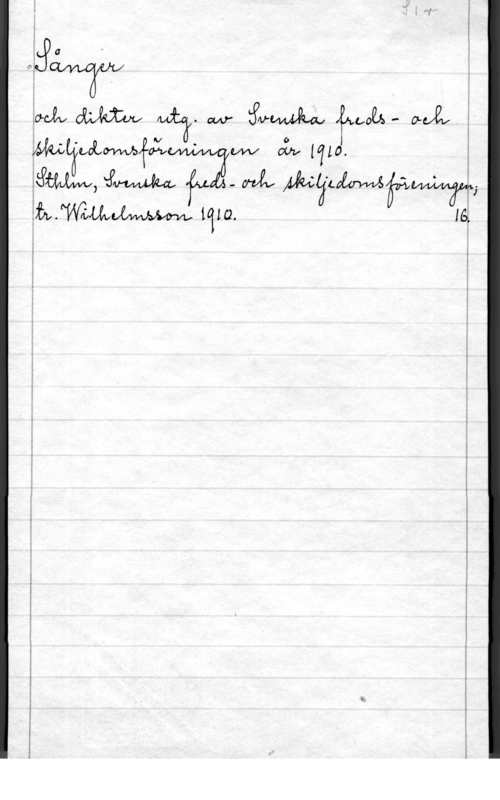 Sånger
och dikter utg. av Svenska freds- och
skiljedomsföreningen år 1910.
Sthlm, Svenska freds- och skiljedomsföreningen;
tr. Wilhelmsson 1910. 16.